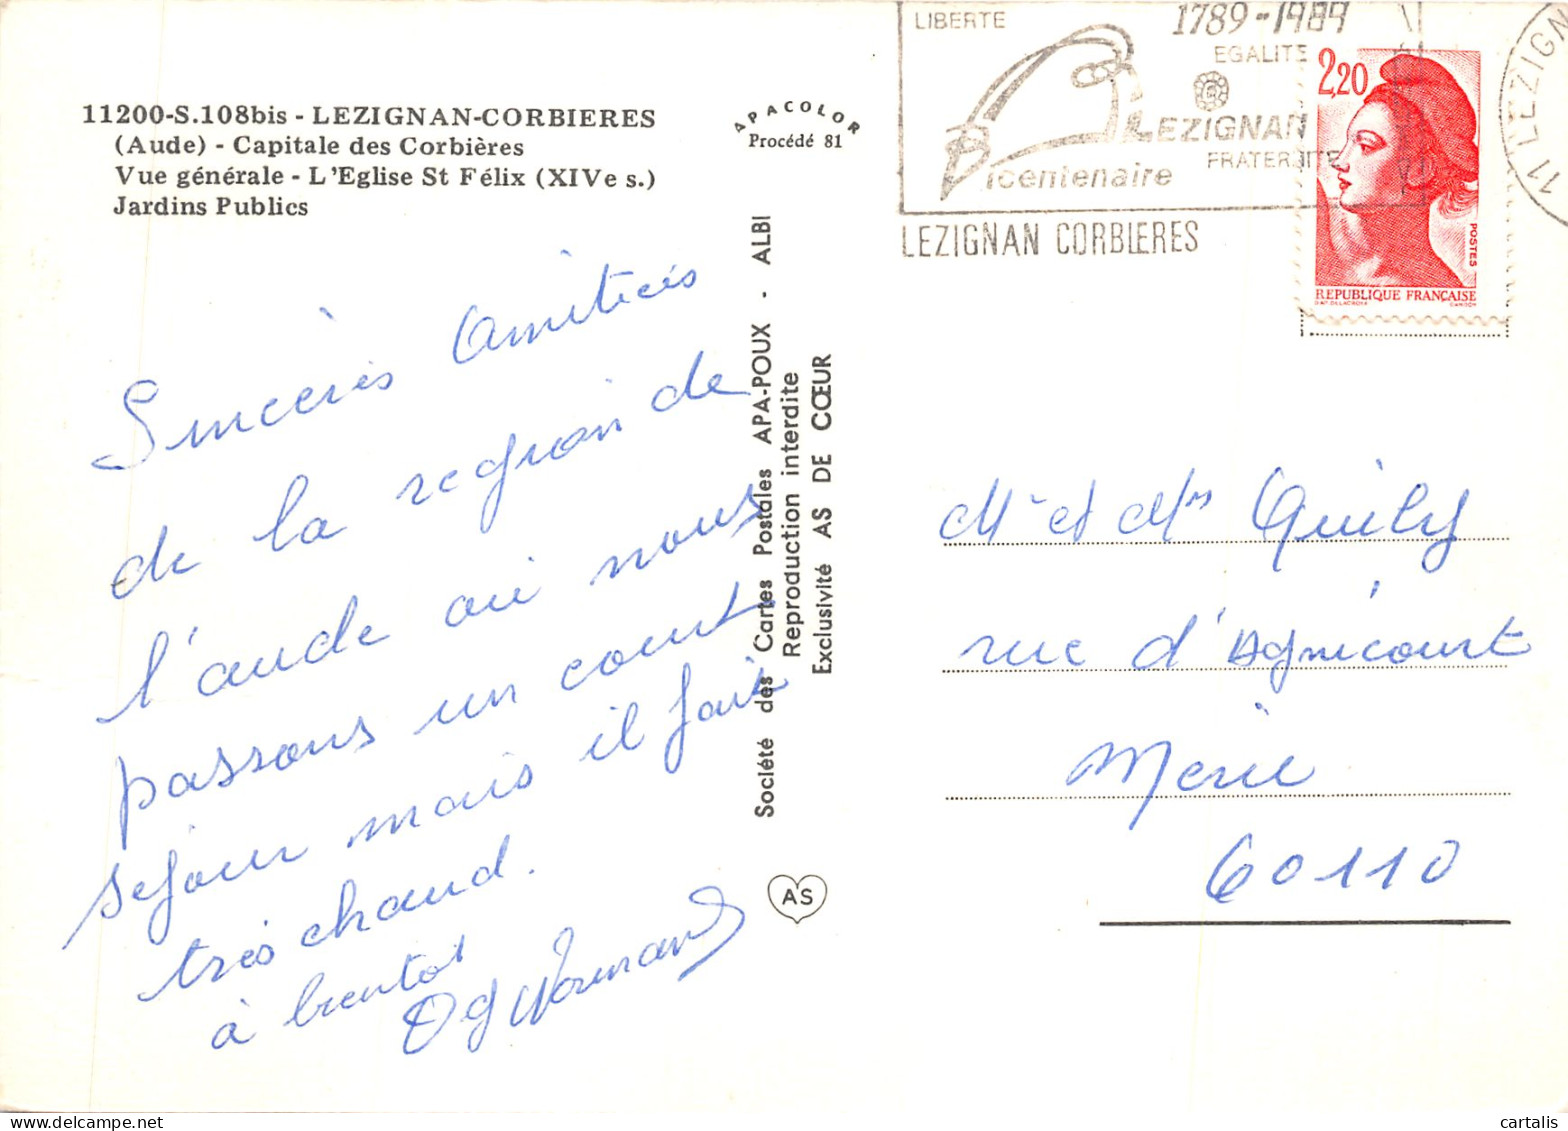 11200-S.108bis - LEZIGNAN-CORBIERES
(Aude) - Capitale des Corbières
Vue générale - L'Eglise St Félix (XIVe s.)
Jardins Publics
APACOLOR
Procédé 81
Sincères Amitiés
de la region de
l'aude où nous
passons un court
sejour mais il fait
très chaud.
à bientot
Normand
Société des Cartes Postales APA-POUX - ALBI
Reproduction interdite
Exclusivité AS DE CŒUR
AS
LIBERTE
1789-1989
EGALITE
LEZIGNAN
FRATERNITE
Bicentenaire
LEZIGNAN CORBIERES
11 LEZIGN
2,20
POSTES
REPUBLIQUE FRANÇAISE
Mr et Mme Quily
rue d'Agnicourt
60110
cartalis